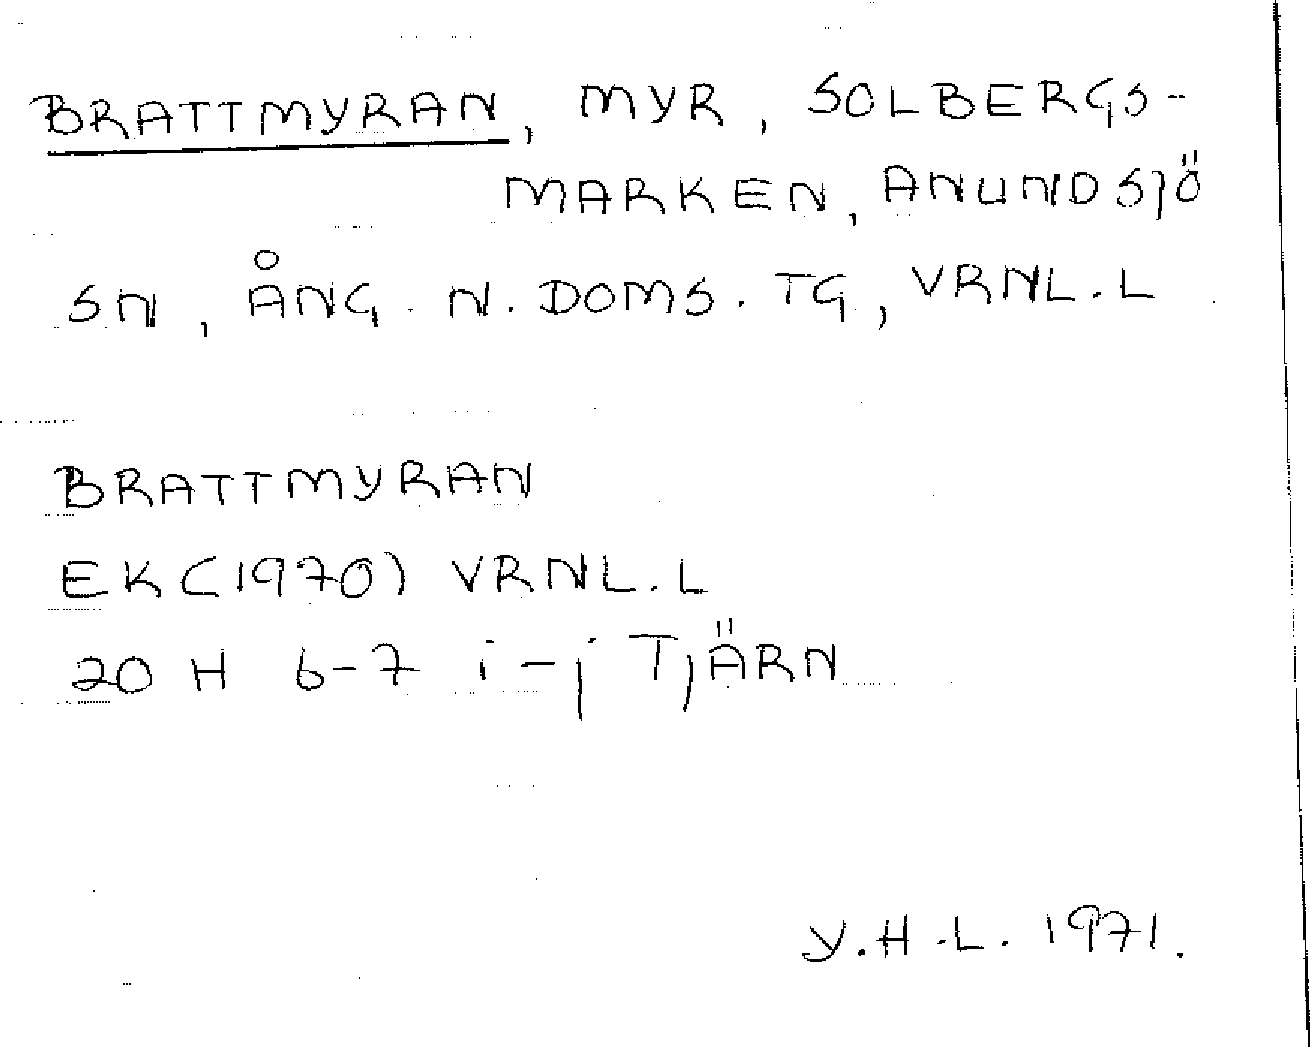 BRATTMYRAN, MYR, SOLBERGS-
MARKEN, ANUNDSJÖ
SN, ÅNG. N. DOMS. TG, VRNL. L
BRATTMYRAN
EK (1970) VRNL. L
20 H 6-7 i-j TJÄRN
Y.H.L. 1971.